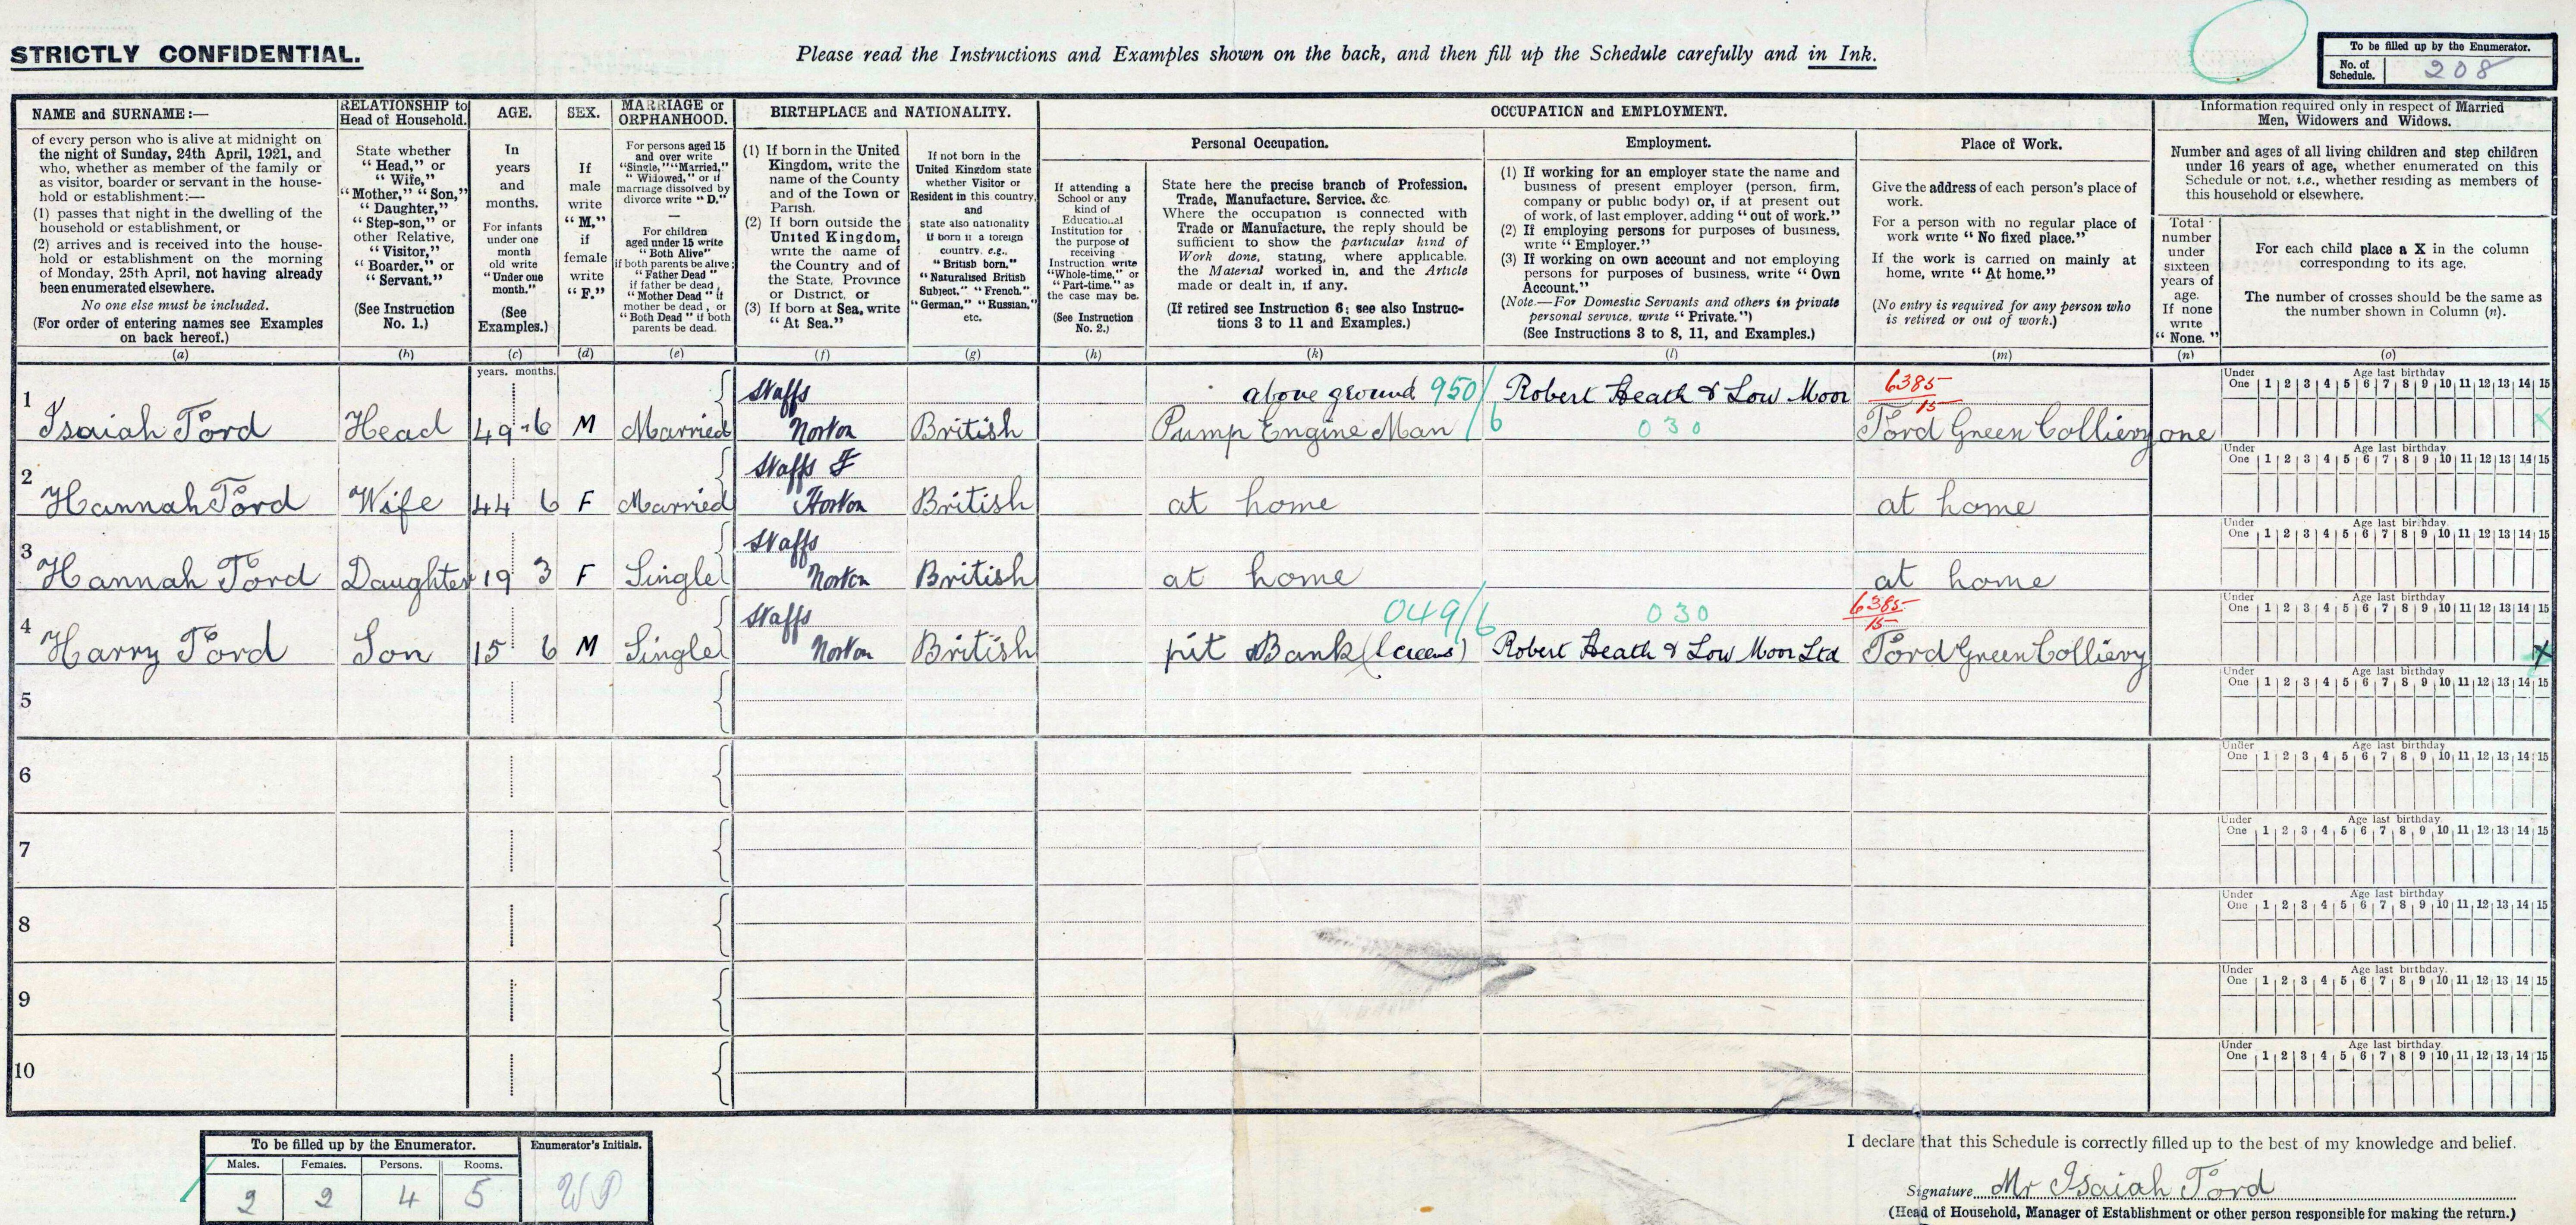 STRICTLY CONFIDENTIAL.
Please read the Instructions and Examples shown on the back, and then fill up the Schedule carefully and in Ink.
To be filled up by the Enumerator.
No. of Schedule. 208
NAME and SURNAME :—
of every person who is alive at midnight on
the night of Sunday, 24th April, 1921, and
who, whether as member of the family or
as visitor, boarder or servant in the house-
hold or establishment:—
(1) passes that night in the dwelling of the
household or establishment, or
(2) arrives and is received into the house-
hold or establishment on the morning
of Monday, 25th April, not having already
been enumerated elsewhere.
No one else must be included.
(For order of entering names see Examples
on back hereof.)
(a)
RELATIONSHIP to
Head of Household.
State whether
“Head,” or
“Wife,”
“Mother,” “Son,”
“Daughter,”
“Step-son,” or
other Relative,
“Visitor,”
“Boarder,” or
“Servant.”
(See Instruction
No. 1.)
(b)
AGE.
In
years
and
months.
For infants
under one
month
old write
“Under one
month.”
(See
Examples.)
(c)
SEX.
If
male
write
“M,”
if
female
write
“F.”
(d)
MARRIAGE or
ORPHANHOOD.
For persons aged 15
and over write
“Single,” “Married,”
“Widowed,” or if
marriage dissolved by
divorce write “D.”
—
For children
aged under 15 write
“Both Alive”
if both parents be alive;
“Father Dead”
if father be dead,
“Mother Dead” if
mother be dead, or
“Both Dead” if both
parents be dead.
(e)
BIRTHPLACE and NATIONALITY.
(1) If born in the United
Kingdom, write the
name of the County
and of the Town or
Parish.
(2) If born outside the
United Kingdom,
write the name of
the Country and of
the State, Province
or District, or
(3) If born at Sea, write
“At Sea.”
(f)
If not born in the
United Kingdom state
whether Visitor or
Resident in this country,
and
state also nationality
if born in a foreign
country, e.g.,
“British born,”
“Naturalised British
Subject,” “French,”
“German,” “Russian,”
etc.
(g)
OCCUPATION and EMPLOYMENT.
Personal Occupation.
If attending a
School or any
kind of
Educational
Institution for
the purpose of
receiving
Instruction write
“Whole-time,” or
“Part-time,” as
the case may be.
(See Instruction
No. 2.)
(h)
State here the precise branch of Profession,
Trade, Manufacture, Service, &c.
Where the occupation is connected with
Trade or Manufacture, the reply should be
sufficient to show the particular kind of
Work done, stating, where applicable,
the Material worked in, and the Article
made or dealt in, if any.
(If retired see Instruction 6; see also Instruc-
tions 3 to 11 and Examples.)
(k)
Employment.
(1) If working for an employer state the name and
business of present employer (person, firm,
company or public body) or, if at present out
of work, of last employer, adding “out of work.”
(2) If employing persons for purposes of business,
write “Employer.”
(3) If working on own account and not employing
persons for purposes of business, write “Own
Account.”
(Note.—For Domestic Servants and others in private
personal service, write “Private.”)
(See Instructions 3 to 8, 11, and Examples.)
(l)
Place of Work.
Give the address of each person's place of
work.
For a person with no regular place of
work write “No fixed place.”
If the work is carried on mainly at
home, write “At home.”
(No entry is required for any person who
is retired or out of work.)
(m)
Information required only in respect of Married
Men, Widowers and Widows.
Number and ages of all living children and step children
under 16 years of age, whether enumerated on this
Schedule or not, i.e., whether residing as members of
this household or elsewhere.
Total
number
under
sixteen
years of
age.
If none
write
“None.”
(n)
For each child place a X in the column
corresponding to its age.
The number of crosses should be the same as
the number shown in Column (n).
(o)
years. months.
Staffs above ground 950/6 Robert Heath & Low Moor 6385/15
1 Isaiah Ford Head 49-6 M Married Norton British Pump Engine Man 030 Ford Green Colliery one
Under One Age last birthday 1 2 3 4 5 6 7 8 9 10 11 12 13 14 15
Staffs
2 Hannah Ford Wife 44 6 F Married Horton British at home at home
Under One Age last birthday 1 2 3 4 5 6 7 8 9 10 11 12 13 14 15
Staffs
3 Hannah Ford Daughter 19 3 F Single Norton British at home at home
Under One Age last birthday 1 2 3 4 5 6 7 8 9 10 11 12 13 14 15
Staffs 049/6 030 6385/15
4 Harry Ford Son 15 6 M Single Norton British pit Bank Robert Heath & Low Moor Ltd Ford Green Colliery X
Under One Age last birthday 1 2 3 4 5 6 7 8 9 10 11 12 13 14 15
5
Under One Age last birthday 1 2 3 4 5 6 7 8 9 10 11 12 13 14 15
6
Under One Age last birthday 1 2 3 4 5 6 7 8 9 10 11 12 13 14 15
7
Under One Age last birthday 1 2 3 4 5 6 7 8 9 10 11 12 13 14 15
8
Under One Age last birthday 1 2 3 4 5 6 7 8 9 10 11 12 13 14 15
9
Under One Age last birthday 1 2 3 4 5 6 7 8 9 10 11 12 13 14 15
10
Under One Age last birthday 1 2 3 4 5 6 7 8 9 10 11 12 13 14 15
To be filled up by the Enumerator.
Males. Females. Persons. Rooms.
2 2 4 5
Enumerator's Initials.
WP
I declare that this Schedule is correctly filled up to the best of my knowledge and belief.
Signature Mr Isaiah Ford
(Head of Household, Manager of Establishment or other person responsible for making the return.)